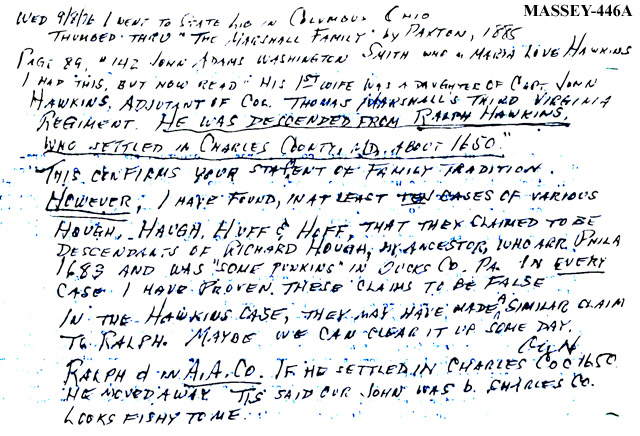 MASSEY-446A
WED 9/8/76 I WENT TO STATE LIB IN COLUMBUS OHIO
THUMBED THRU "THE MARSHALL FAMILY" by PAXTON, 1885
PAGE 89, #142 JOHN ADAMS WASHINGTON SMITH WHO = MARIA LOVE HAWKINS
I HAD THIS, BUT NOW READ "HIS 1ST WIFE WAS A DAUGHTER OF CAPT. JOHN
HAWKINS, ADJUTANT OF COL. THOMAS MARSHALL'S THIRD VIRGINIA
REGIMENT. HE WAS DESCENDED FROM RALPH HAWKINS,
WHO SETTLED IN CHARLES COUNTY, MD. ABOUT 1650."
THIS CONFIRMS YOUR STATM'ENT OF FAMILY TRADITION.
HOWEVER, I HAVE FOUND, IN AT LEAST TEN CASES OF VARIOUS
HOUGH, HAUGH, HUFF & HOFF, THAT THEY CLAIMED TO BE
DESCENDANTS OF RICHARD HOUGH, MY ANCESTOR, WHO ARR. PHILA
1683 AND WAS "SOME PUNKINS" IN BUCKS CO. PA. IN EVERY
CASE I HAVE PROVEN THESE CLAIMS TO BE FALSE
IN THE HAWKINS CASE, THEY MAY HAVE MADE A SIMILAR CLAIM
TO RALPH. MAYBE WE CAN CLEAR IT UP SOME DAY.
RALPH d IN A.A. CO. IF HE SETTLED IN CHARLES CO C 1650
HE MOVED AWAY. TIS SAID OUR JOHN WAS b. CHARLES CO.
LOOKS FISHY TO ME.